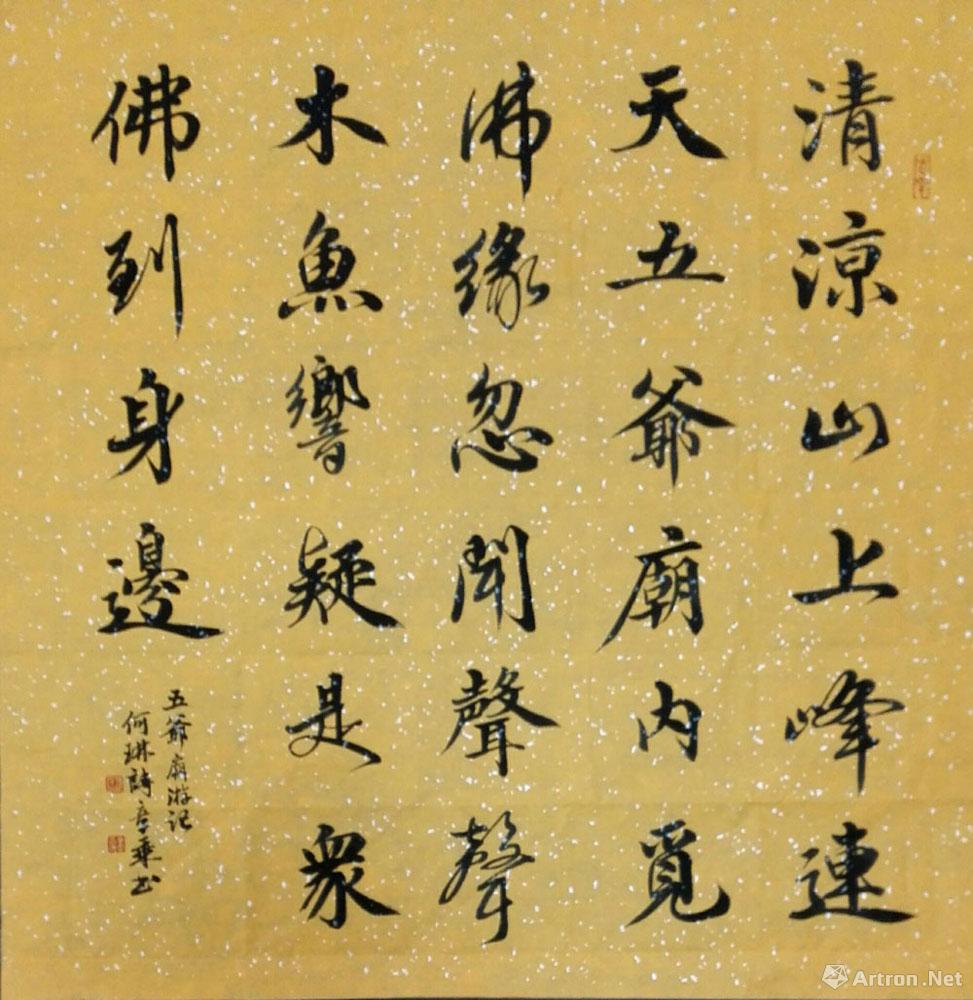 清涼山上峰連
天五爺廟內覓
佛緣忽聞聲聲
木魚響疑是眾
佛到身邊
五爺廟游記
何琳詩
書
Artron.Net